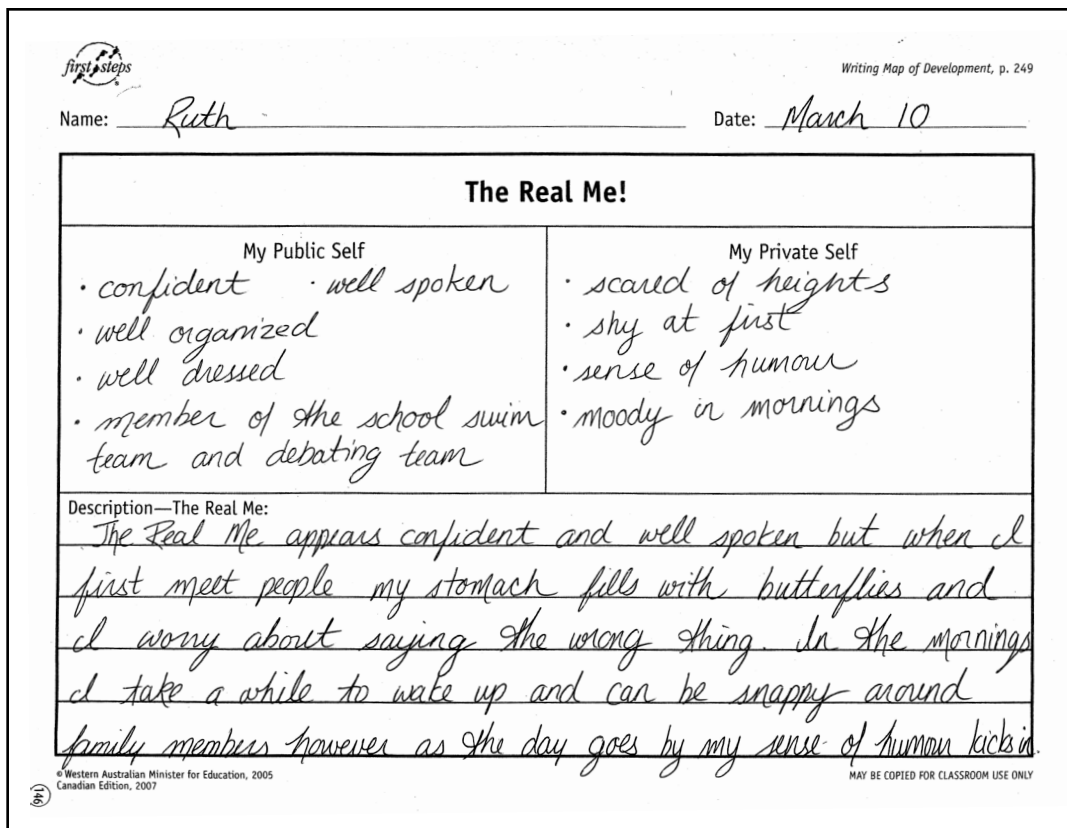 first steps
Writing Map of Development, p. 249
Name: Ruth
Date: March 10
The Real Me!
My Public Self
• confident • well spoken
• well organized
• well dressed
• member of the school swim
team and debating team
My Private Self
• scared of heights
• shy at first
• sense of humour
• moody in mornings
Description—The Real Me:
The Real Me appears confident and well spoken but when I
first meet people my stomach fills with butterflies and
I worry about saying the wrong thing. In the mornings
I take a while to wake up and can be snappy around
family members however as the day goes by my sense of humour kicks in.
© Western Australian Minister for Education, 2005
Canadian Edition, 2007
MAY BE COPIED FOR CLASSROOM USE ONLY
146